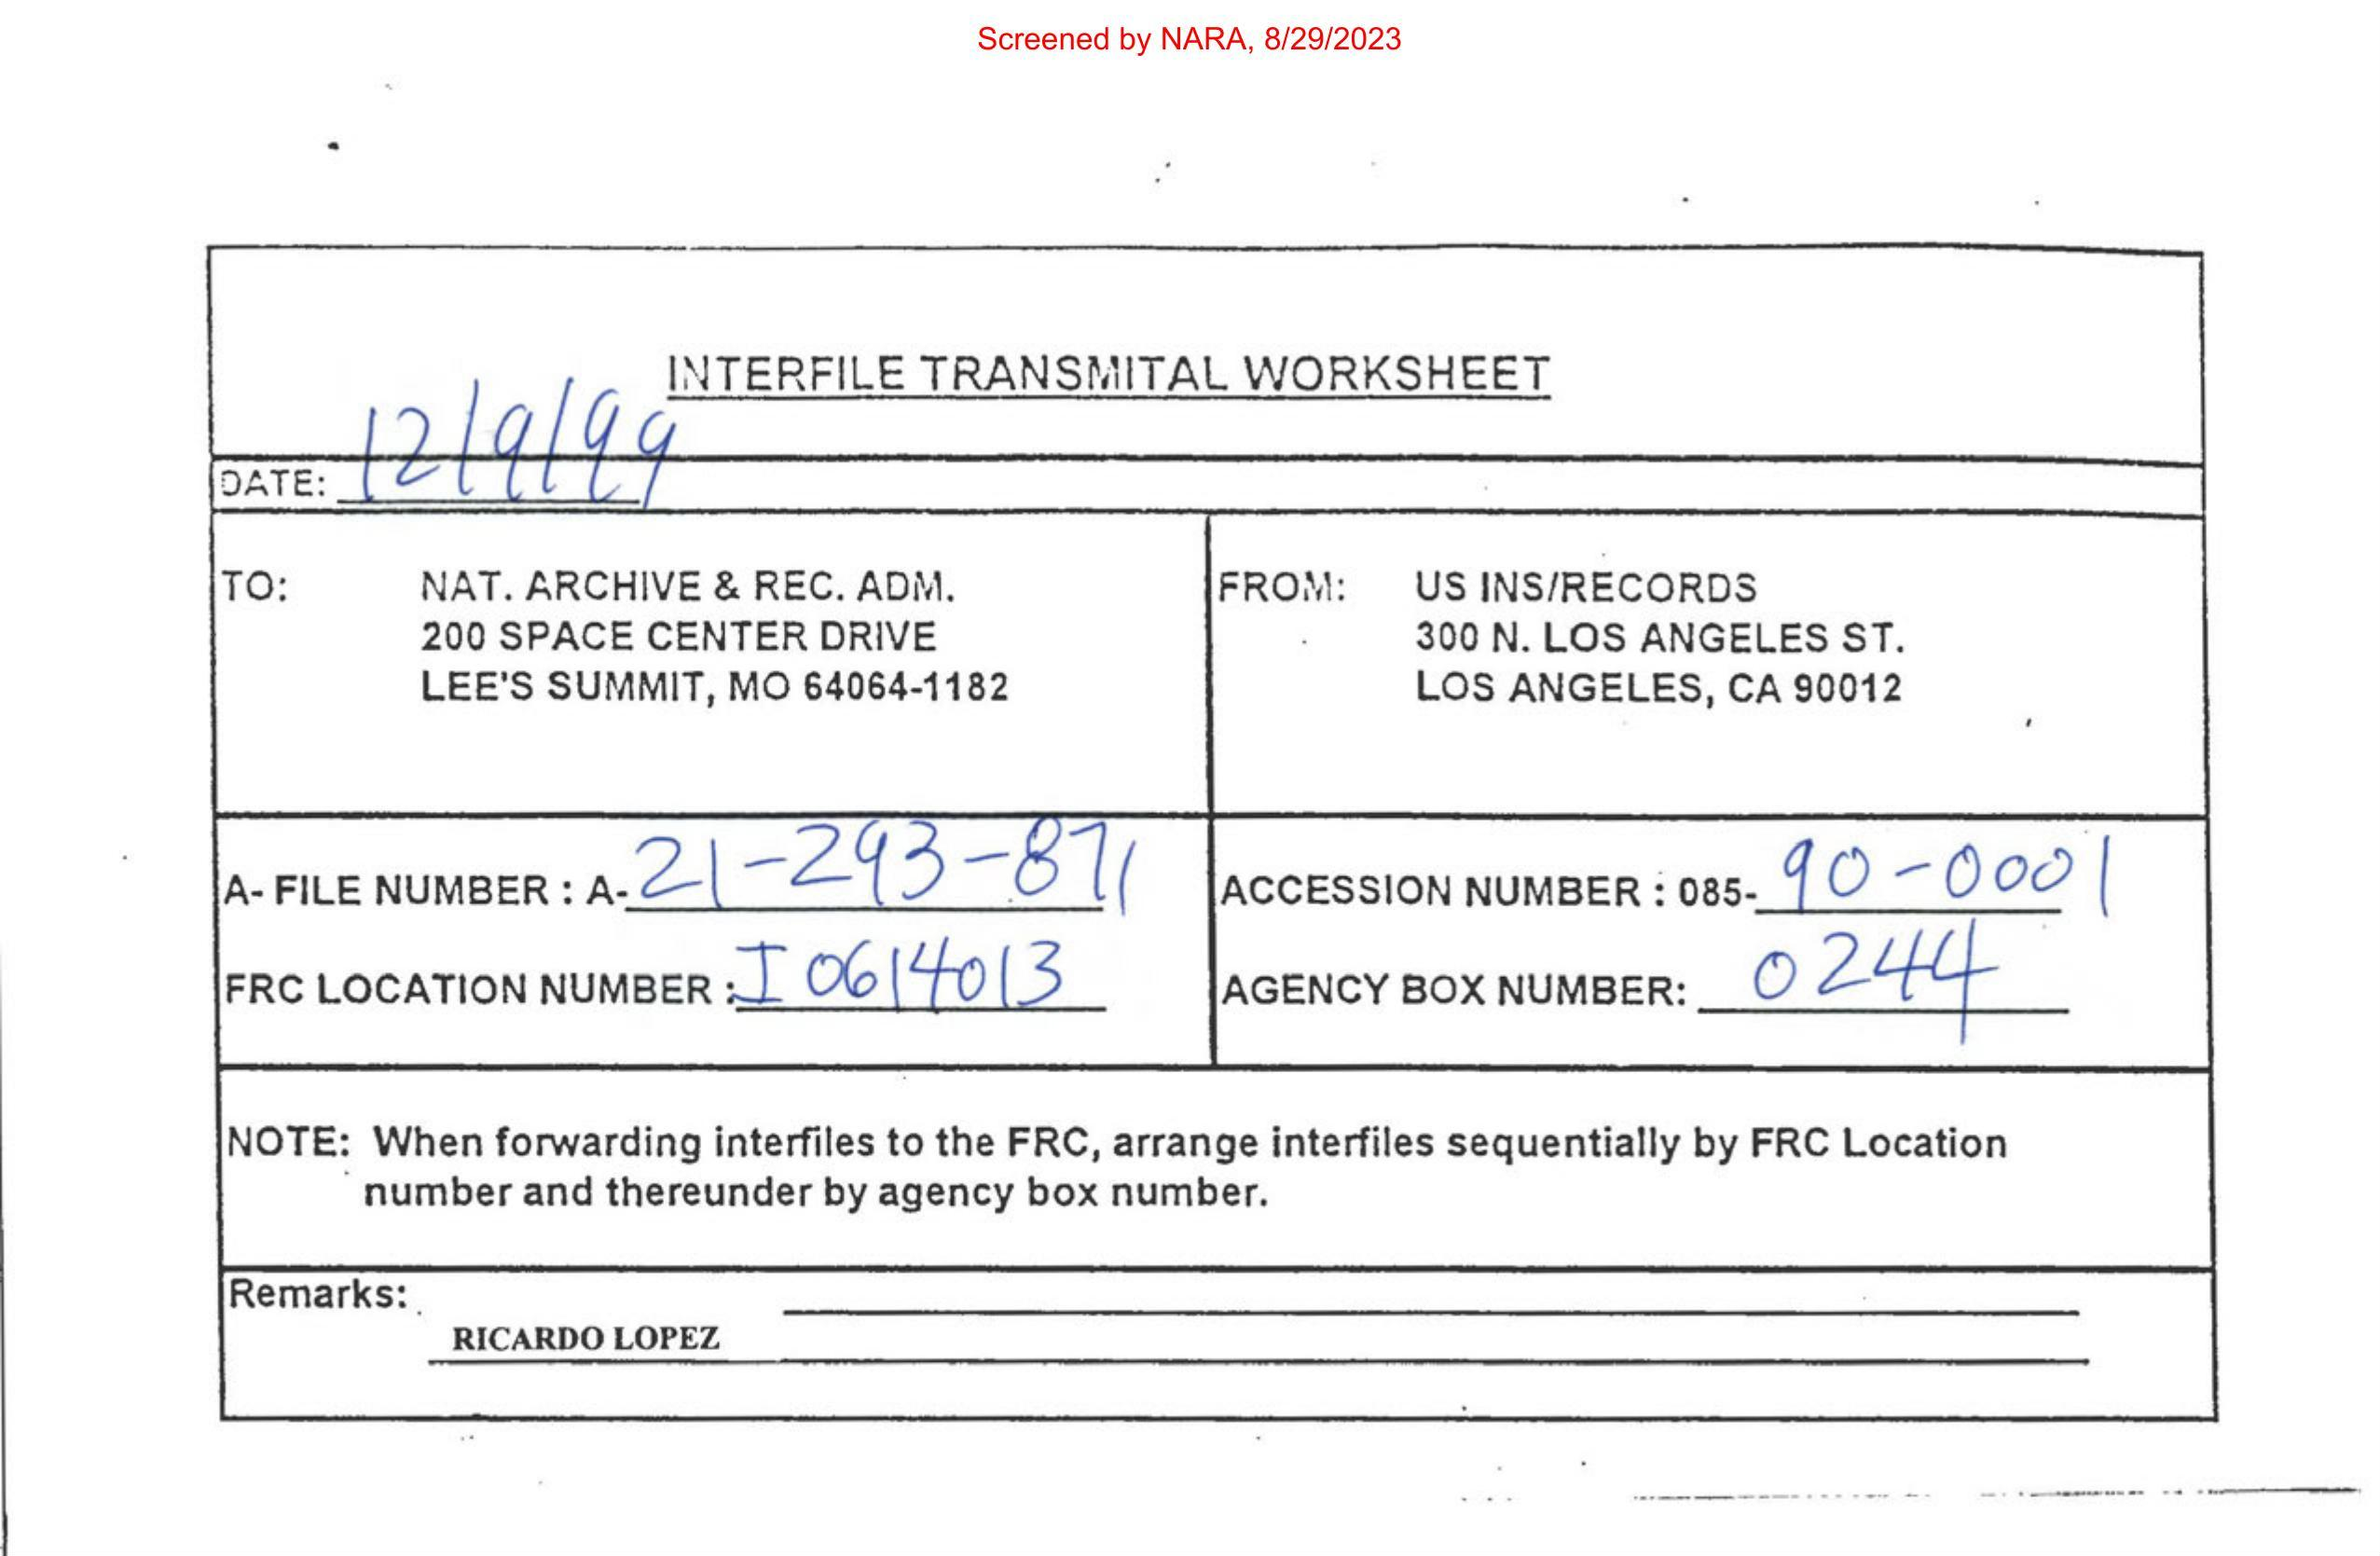 Screened by NARA, 8/29/2023
INTERFILE TRANSMITAL WORKSHEET
DATE: 12/9/99
TO: NAT. ARCHIVE & REC. ADM.
200 SPACE CENTER DRIVE
LEE'S SUMMIT, MO 64064-1182
FROM: US INS/RECORDS
300 N. LOS ANGELES ST.
LOS ANGELES, CA 90012
A- FILE NUMBER : A- 21-293-871
FRC LOCATION NUMBER : I0614013
ACCESSION NUMBER : 085- 90-0001
AGENCY BOX NUMBER: 0244
NOTE: When forwarding interfiles to the FRC, arrange interfiles sequentially by FRC Location
number and thereunder by agency box number.
Remarks:
RICARDO LOPEZ